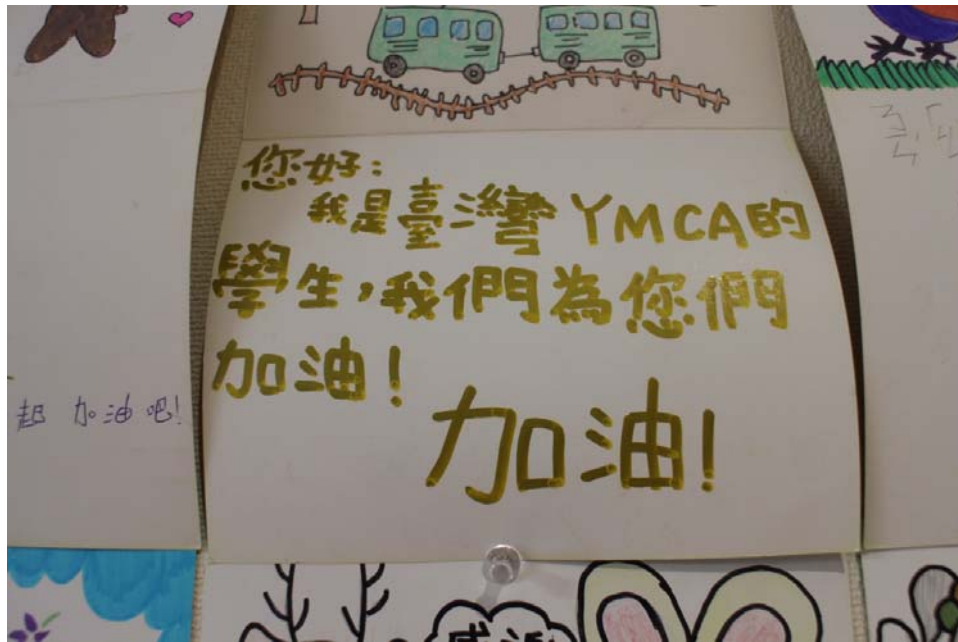 您好：
我是臺灣YMCA的
學生，我們為您們
加油！
加油！
起 加油吧！
感謝